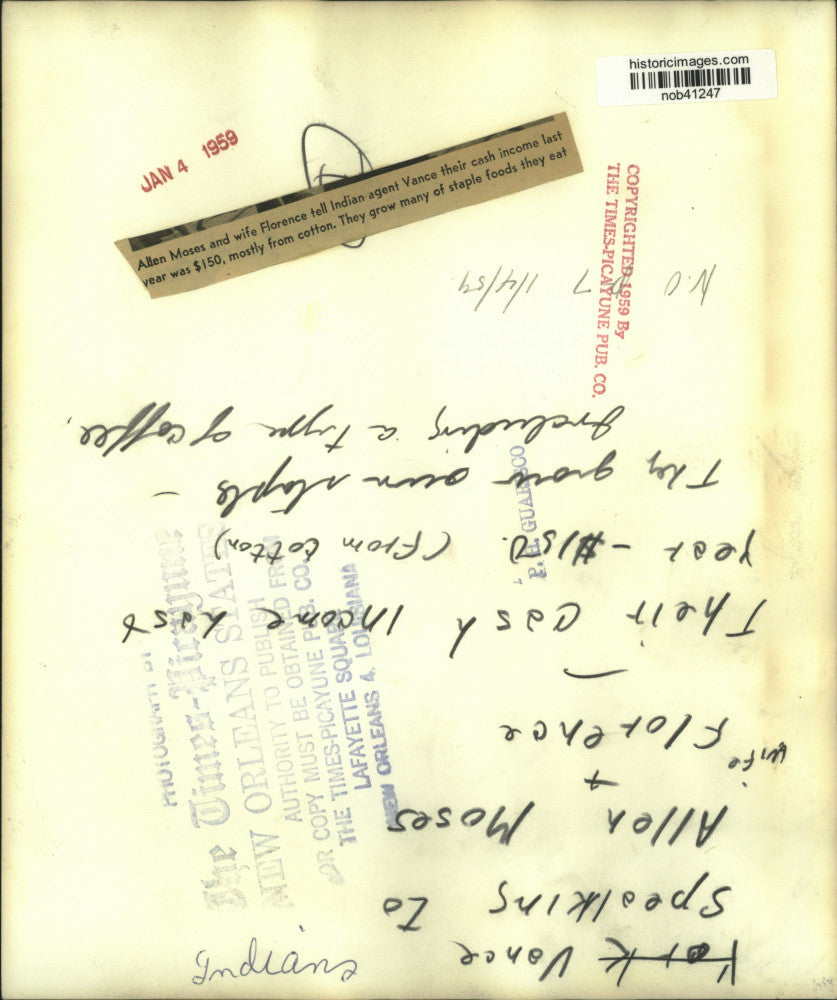 historicimages.com
nob41247
JAN 4 1959
Allen Moses and wife Florence tell Indian agent Vance their cash income last
year was $150, mostly from cotton. They grow many of staple foods they eat
COPYRIGHTED 1959 By
THE TIMES-PICAYUNE PUB. CO.
N.O 7 1/4/59
York Vance
Speaking to
Allen Moses
+
wife Florence —
Their cash income last
year - $150. (From Cotton)
They grow own staple —
including a type of coffee.
PHOTOGRAPH BY
The Times-Picayune
NEW ORLEANS STATES
AUTHORITY TO PUBLISH
OR COPY MUST BE OBTAINED FROM
THE TIMES-PICAYUNE PUB. CO.
LAFAYETTE SQUARE
NEW ORLEANS 4, LOUISIANA
GUARISCO
Indians